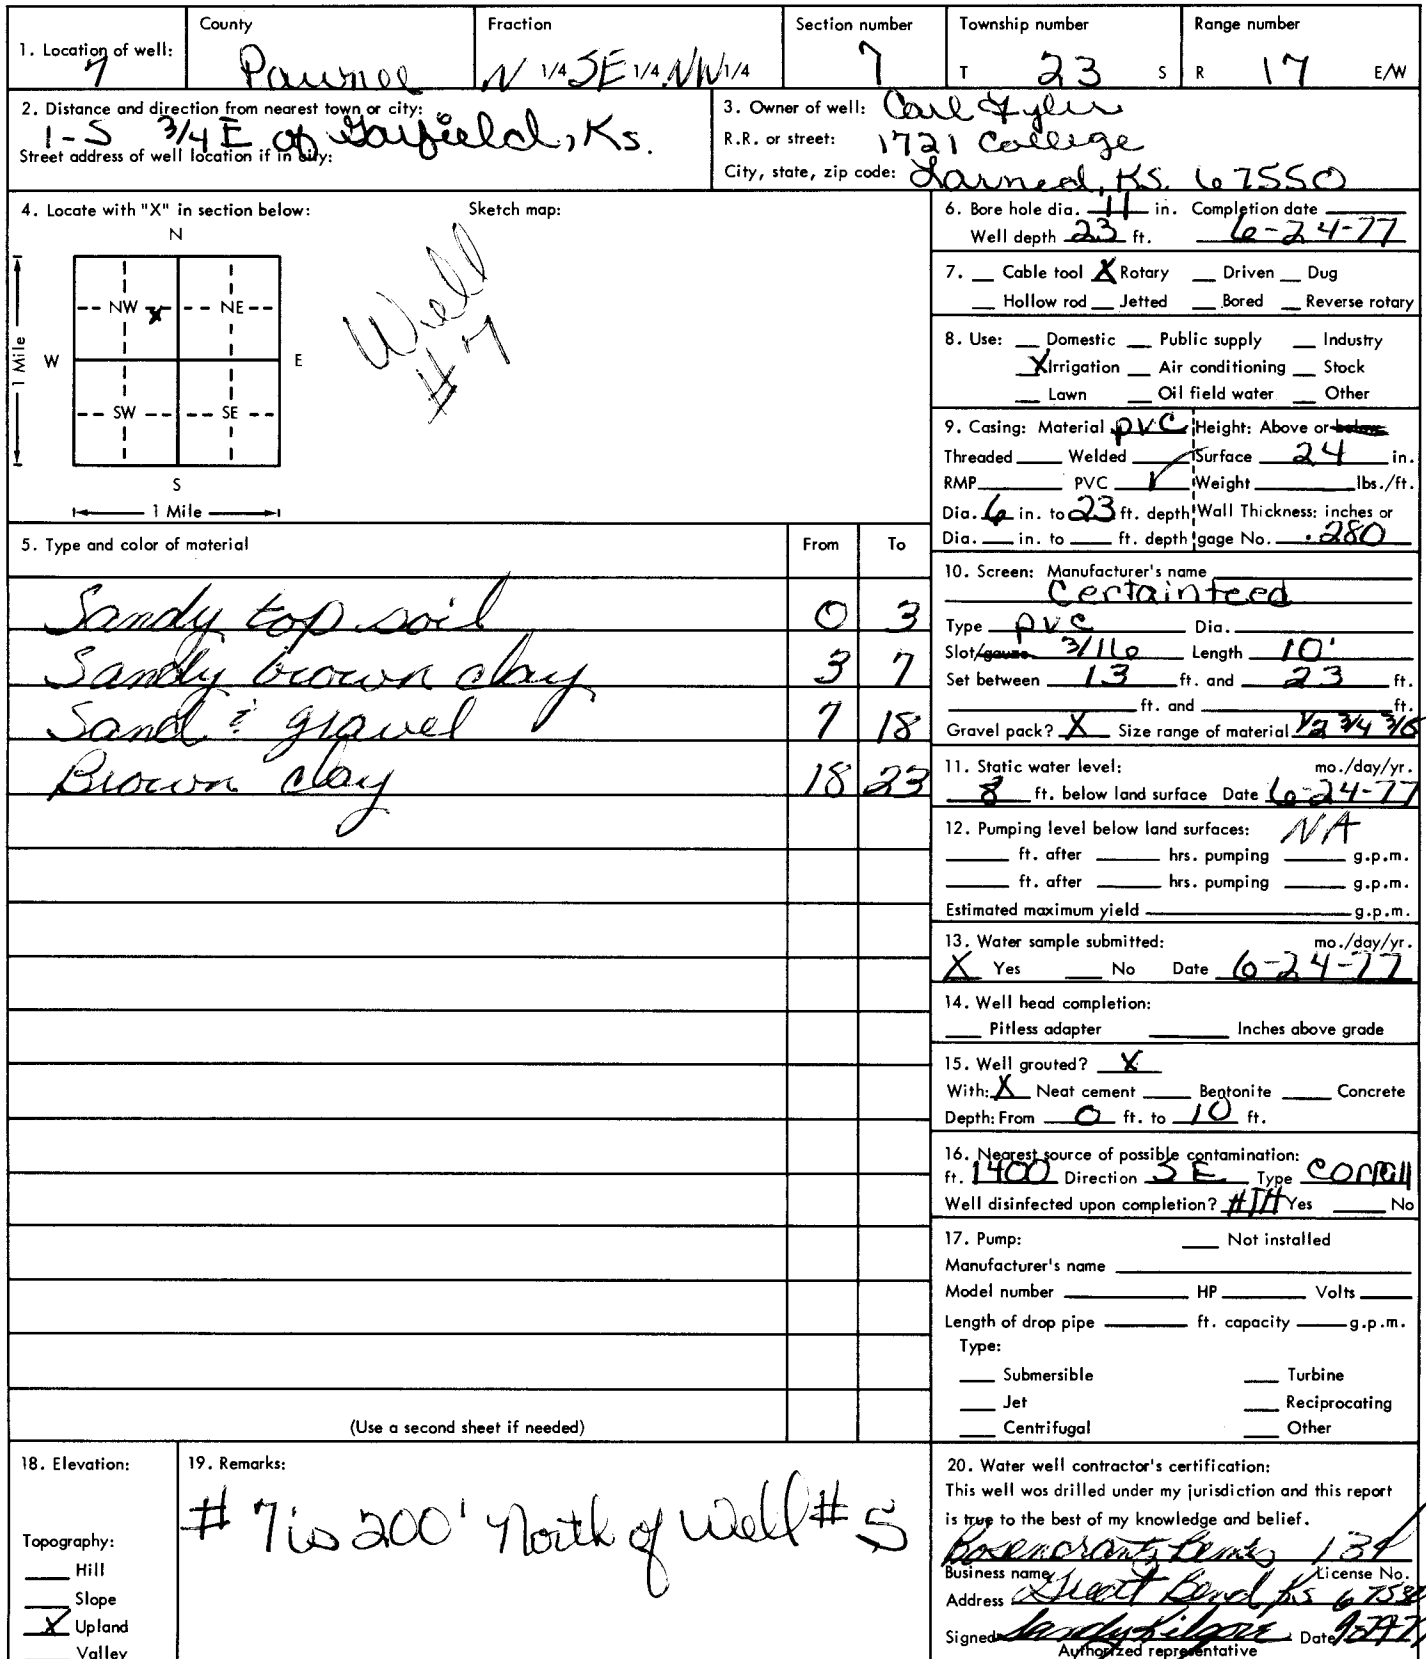 1. Location of well: 7
County Pawnee
Fraction N 1/4 SE 1/4 NW 1/4
Section number 7
Township number T 23 S
Range number R 17 E/W
2. Distance and direction from nearest town or city:
1-S 3/4 E of Garfield, Ks.
Street address of well location if in city:
3. Owner of well: Carl
R.R. or street: 1721 College
City, state, zip code: Larned, KS. 67550
4. Locate with "X" in section below:
Sketch map:
N
NW X NE
W E
SW SE
S
1 Mile
1 Mile
Well
#7
5. Type and color of material From To
Sandy top soil 0 3
Sandy brown clay 3 7
Sand & gravel 7 18
Brown clay 18 23
(Use a second sheet if needed)
6. Bore hole dia. 11 in. Completion date
Well depth 23 ft. 6-24-77
7. __ Cable tool X Rotary __ Driven __ Dug
__ Hollow rod __ Jetted __ Bored __ Reverse rotary
8. Use: __ Domestic __ Public supply __ Industry
X Irrigation __ Air conditioning __ Stock
__ Lawn __ Oil field water __ Other
9. Casing: Material PVC Height: Above or below
Threaded __ Welded __ Surface 24 in.
RMP __ PVC ✓ Weight __ lbs./ft.
Dia. 6 in. to 23 ft. depth Wall Thickness: inches or
Dia. __ in. to __ ft. depth gage No. .280
10. Screen: Manufacturer's name
Certainteed
Type PVC Dia. __
Slot/gauze 3/116 Length 10'
Set between 13 ft. and 23 ft.
__ ft. and __ ft.
Gravel pack? X Size range of material 1/2 3/4
11. Static water level: mo./day/yr.
8 ft. below land surface Date 6-24-77
12. Pumping level below land surfaces: NA
__ ft. after __ hrs. pumping __ g.p.m.
__ ft. after __ hrs. pumping __ g.p.m.
Estimated maximum yield __ g.p.m.
13. Water sample submitted: mo./day/yr.
X Yes __ No Date 6-24-77
14. Well head completion:
__ Pitless adapter __ Inches above grade
15. Well grouted? X
With: X Neat cement __ Bentonite __ Concrete
Depth: From 0 ft. to 10 ft.
16. Nearest source of possible contamination:
ft. 1400 Direction SE Type
Well disinfected upon completion? HTH Yes __ No
17. Pump: __ Not installed
Manufacturer's name __
Model number __ HP __ Volts __
Length of drop pipe __ ft. capacity __ g.p.m.
Type:
__ Submersible __ Turbine
__ Jet __ Reciprocating
__ Centrifugal __ Other
18. Elevation:
Topography:
__ Hill
__ Slope
X Upland
__ Valley
19. Remarks:
# 7 is 200' North of Well # 5
20. Water well contractor's certification:
This well was drilled under my jurisdiction and this report
is true to the best of my knowledge and belief.
Rosencrantz Bemis 134
Business name License No.
Address Great Bend Ks 67530
Signed Sandy Kilgore Date
Authorized representative